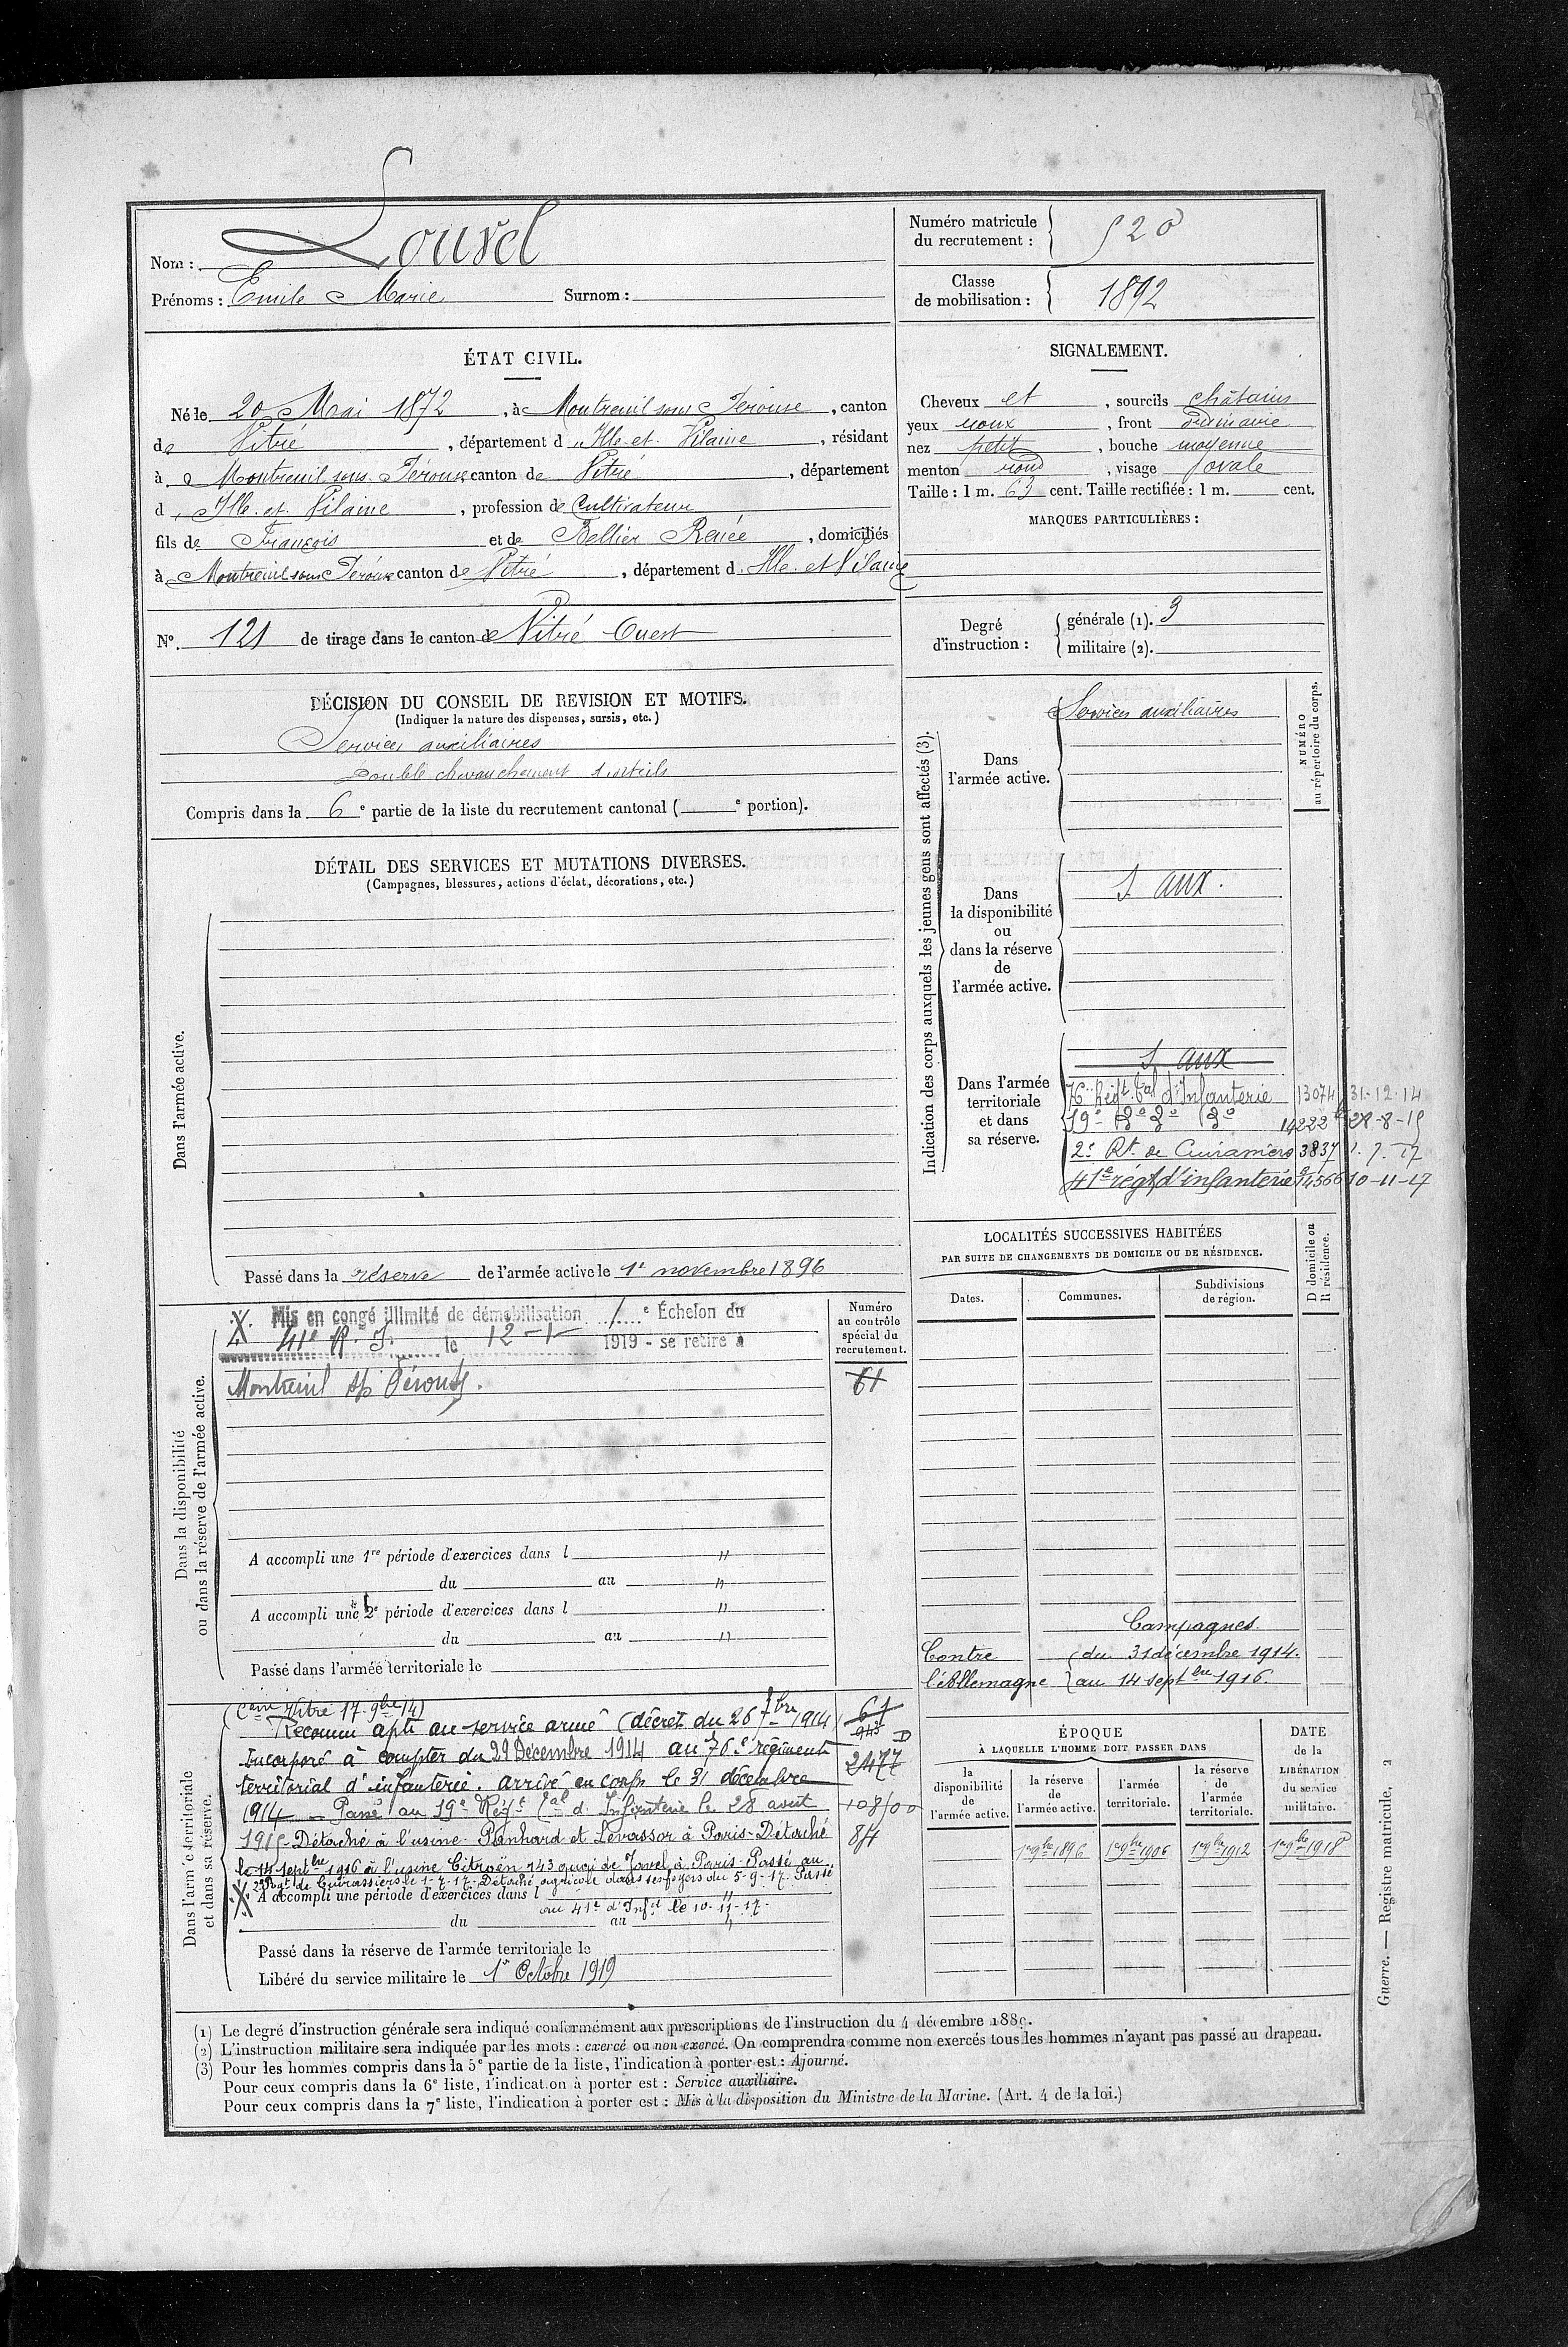 Nom : Louvel
Prénoms : Emile Marie Surnom :
Numéro matricule
du recrutement : 520
Classe
de mobilisation : 1892
ÉTAT CIVIL.
Né le 20 Mai 1872, à Montreuil sous Pérouse, canton
de Vitré, département d'Ille-et-Vilaine, résidant
à Montreuil sous Pérouse canton de Vitré, département
d'Ille-et-Vilaine, profession de Cultivateur
fils de François et de Bellier Renée, domiciliés
à Montreuil sous Pérouse canton de Vitré, département d'Ille-et-Vilaine
N° 121 de tirage dans le canton de Vitré Ouest
SIGNALEMENT.
Cheveux et, sourcils châtains
yeux roux, front ordinaire
nez petit, bouche moyenne
menton rond, visage ovale
Taille : 1 m. 63 cent. Taille rectifiée : 1 m. cent.
MARQUES PARTICULIÈRES :
Degré
d'instruction :
générale (1). 3
militaire (2).
DÉCISION DU CONSEIL DE REVISION ET MOTIFS.
(Indiquer la nature des dispenses, sursis, etc.)
Services auxiliaires
Double chevauchement d'orteils
Compris dans la 6e partie de la liste du recrutement cantonal ( e portion).
DÉTAIL DES SERVICES ET MUTATIONS DIVERSES.
(Campagnes, blessures, actions d'éclat, décorations, etc.)
Dans l'armée active.
Passé dans la réserve de l'armée active le 1er novembre 1896
Indication des corps auxquels les jeunes gens sont affectés (3).
NUMÉRO
au répertoire du corps.
Dans
l'armée active.
Services auxiliaires
Dans
la disponibilité
ou
dans la réserve
de
l'armée active.
S. aux.
Dans l'armée
territoriale
et dans
sa réserve.
S. aux
76e Régt. tal d'Infanterie 13074 31-12-14
19e do do do 14222 28-8-15
2e Rt de Cuirassiers 3837 1-7-17
41e régt d'infanterie 14566 10-11-17
Dans la disponibilité
ou dans la réserve de l'armée active.
Mis en congé illimité de démobilisation 1e Échelon du
41e R. I. le 12-1- 1919 - se retire à
Montreuil s/s Pérouse.
Numéro
au contrôle
spécial du
recrutement.
61
A accompli une 1re période d'exercices dans l "
du au "
A accompli une 2e période d'exercices dans l "
du au "
Passé dans l'armée territoriale le
LOCALITÉS SUCCESSIVES HABITÉES
PAR SUITE DE CHANGEMENTS DE DOMICILE OU DE RÉSIDENCE.
Dates. Communes. Subdivisions
de région.
D domicile ou
R résidence.
Campagnes.
Contre (du 31 décembre 1914.
l'Allemagne } au 14 septbre 1916.
Dans l'armée territoriale
et dans sa réserve.
(Con Vitré 17-9bre 14)
Reconnu apte au service armé (décret du 26 7bre 1914)
Incorporé à compter du 29 Décembre 1914 au 76e régiment
territorial d'infanterie. arrivé au corps le 31 décembre
1914 - Passé au 19e Régt tal d'Infanterie le 28 août
1915 - Détaché à l'usine Panhard et Levassor à Paris - Détaché
le 14 septbre 1916 à l'usine Citroën 143 quai de Javel à Paris. Passé au
2e Rgt de Cuirassiers le 1-7-17. Détaché agricole dans ses foyers du 5-9-17. Passé
A accompli une période d'exercices dans l "
au 41e d'Infrie le 10-11-17.
du au "
Passé dans la réserve de l'armée territoriale le
Libéré du service militaire le 1er Octobre 1919
61
943
D
2477
108/00
84
ÉPOQUE
À LAQUELLE L'HOMME DOIT PASSER DANS
la
disponibilité
de
l'armée active.
la réserve
de
l'armée active.
l'armée
territoriale.
la réserve
de
l'armée
territoriale.
DATE
de la
LIBÉRATION
du service
militaire.
1er 9bre 1896 1er 9bre 1906 1er 9bre 1912 1er 9bre 1918
(1) Le degré d'instruction générale sera indiqué conformément aux prescriptions de l'instruction du 4 décembre 1889.
(2) L'instruction militaire sera indiquée par les mots : exercé ou non exercé. On comprendra comme non exercés tous les hommes n'ayant pas passé au drapeau.
(3) Pour les hommes compris dans la 5e partie de la liste, l'indication à porter est : Ajourné.
Pour ceux compris dans la 6e liste, l'indication à porter est : Service auxiliaire.
Pour ceux compris dans la 7e liste, l'indication à porter est : Mis à la disposition du Ministre de la Marine. (Art. 4 de la loi.)
Guerre. — Registre matricule. 2